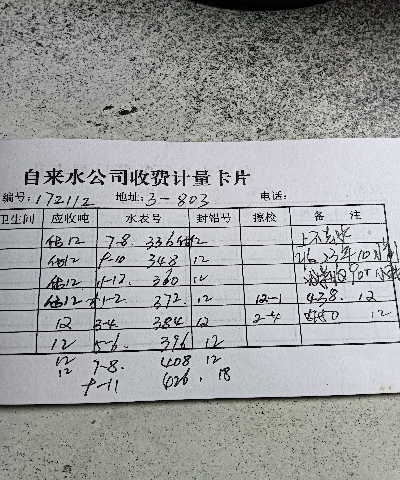 自来水公司收费计量卡片
编号: 172112 地址: 3-803 电话:
卫生间 应收吨 水表号 封铅号 擦校 备注
估12 7-8. 336 估12
估12 9-10 348 12
估12 11-12 360 12
估12 1-2 372. 12 12-1 438. 12
12 3-4 384 12 2-4 450 12
12 5-6. 396 12
12 7-8. 408 12
12 9-11 426. 18